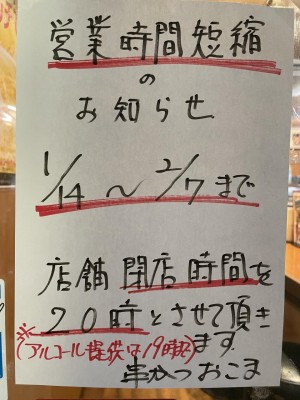 営業時間短縮
の
お知らせ
1/14〜2/7まで
店舗閉店時間を
20時とさせて頂き
ます
※(アルコール提供は19時迄)
串かつおこま